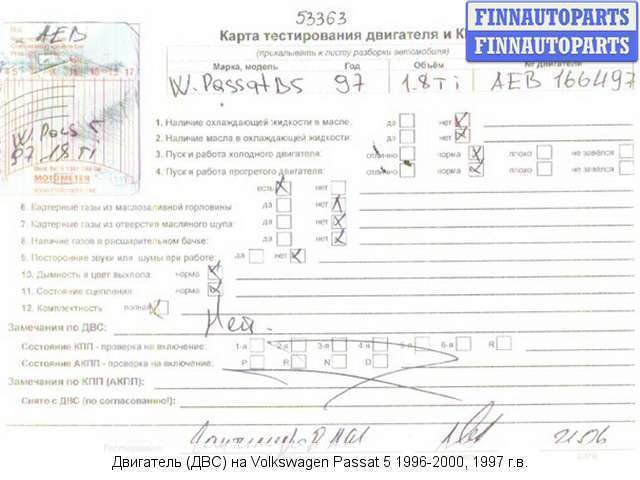 53363
FINNAUTOPARTS
FINNAUTOPARTS
AEB
Карта тестирования двигателя и К
(прикалывать к листу разборки автомобиля)
Марка, модель Год Объём № двигателя
W. Passat B5 97 1.8 Ti AEB 166497
W. Pass 5
97 1.8 Ti
MOTOMETER
1. Наличие охлаждающей жидкости в масле: да нет
2. Наличие масла в охлаждающей жидкости: да нет
3. Пуск и работа холодного двигателя: отлично норма плохо не завёлся
4. Пуск и работа прогретого двигателя: отлично норма плохо не завёлся
есть нет
6. Картерные газы из маслозаливной горловины да нет
7. Картерные газы из отверстия масляного щупа: да нет
8. Наличие газов в расширительном бачке: да нет
9. Посторонние звуки или шумы при работе: да нет
10. Дымность и цвет выхлопа: норма
11. Состояние сцепления: норма
12. Комплектность полная
Замечания по ДВС: Нет.
Состояние КПП - проверка на включение: 1-я 2-я 3-я 4-я 5-я 6-я R
Состояние АКПП - проверка на включение: P R N D
Замечания по КПП (АКПП):
Снято с ДВС (по согласованию!):
Двигатель (ДВС) на Volkswagen Passat 5 1996-2000, 1997 г.в.